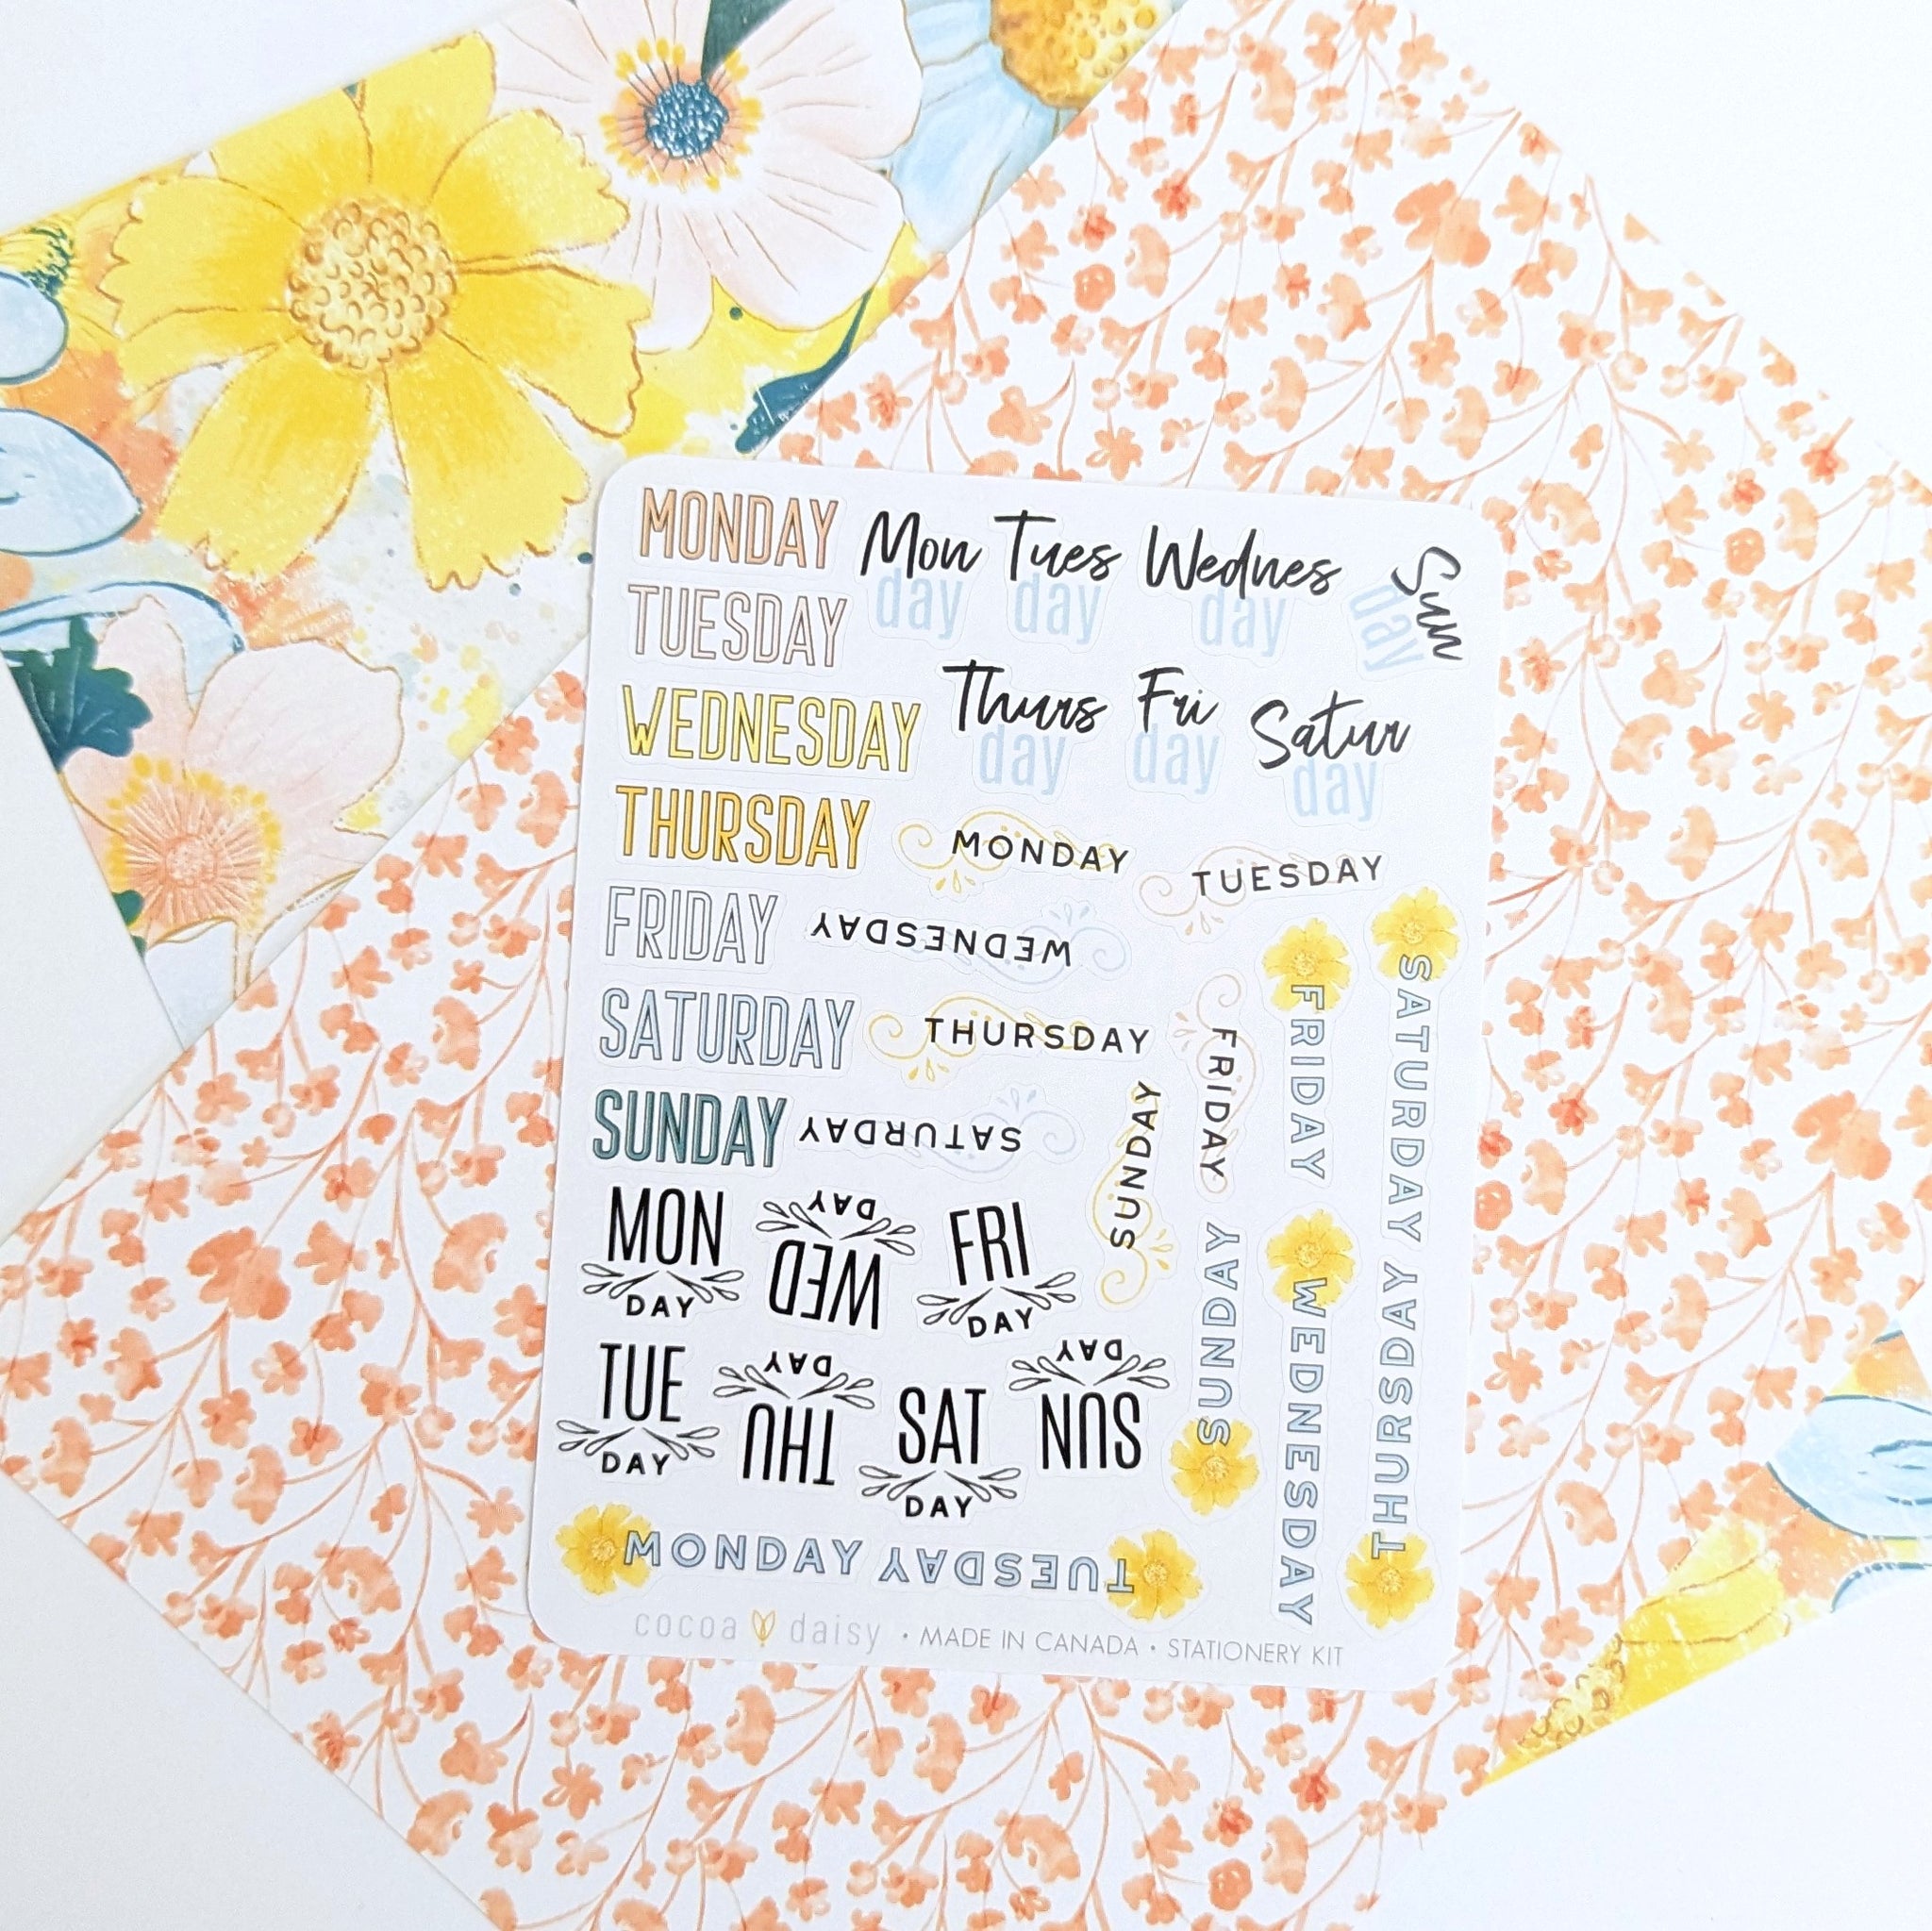 MONDAY
Mon day
Tues day
Wednes day
Sun day
TUESDAY
WEDNESDAY
Thurs day
Fri day
Satur day
THURSDAY
MONDAY
TUESDAY
FRIDAY
WEDNESDAY
SATURDAY
THURSDAY
FRIDAY
FRIDAY
SATURDAY
SUNDAY
SATURDAY
SUNDAY
MON
DAY
WED
DAY
FRI
DAY
TUE
DAY
THU
DAY
SAT
DAY
SUN
DAY
SUNDAY
WEDNESDAY
THURSDAY
MONDAY
TUESDAY
cocoa daisy • MADE IN CANADA • STATIONERY KIT